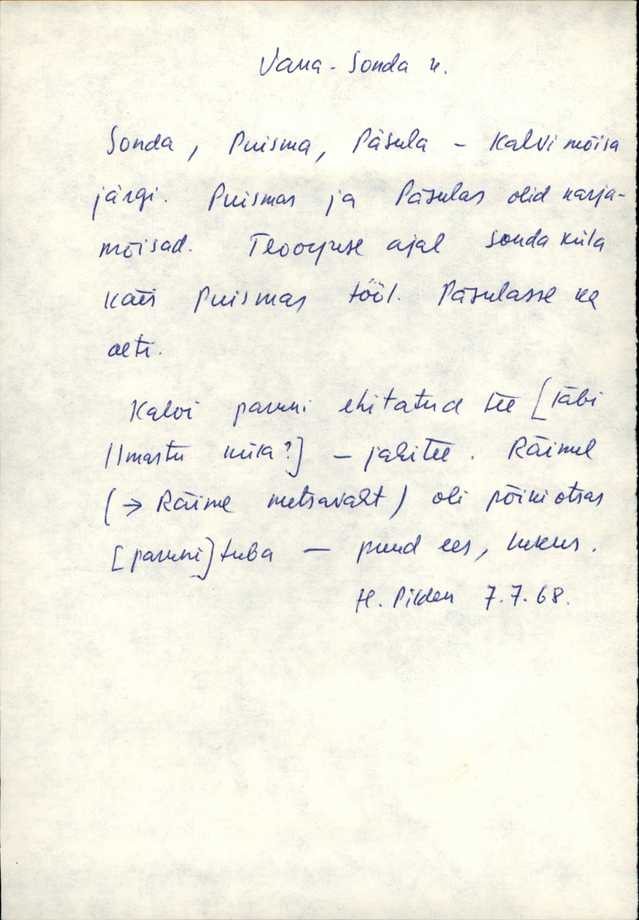 Vana-Sonda k.
Sonda, Puisma, Päsula – Kalvi mõisa
järgi. Puismas ja Päsulas olid karja-
mõisad. Teoorjuse ajal Sonda küla
käis Puismas tööl. Päsulasse ka
aeti.
Kalvi paruni ehitatud tee [läbi
Ilmastu küla?] – jahitee. Räimel
(→ Räime metsavaht) oli põiki otsas
[paruni] tuba – puud ees, lukus.
H. Pilden 7.7.68.